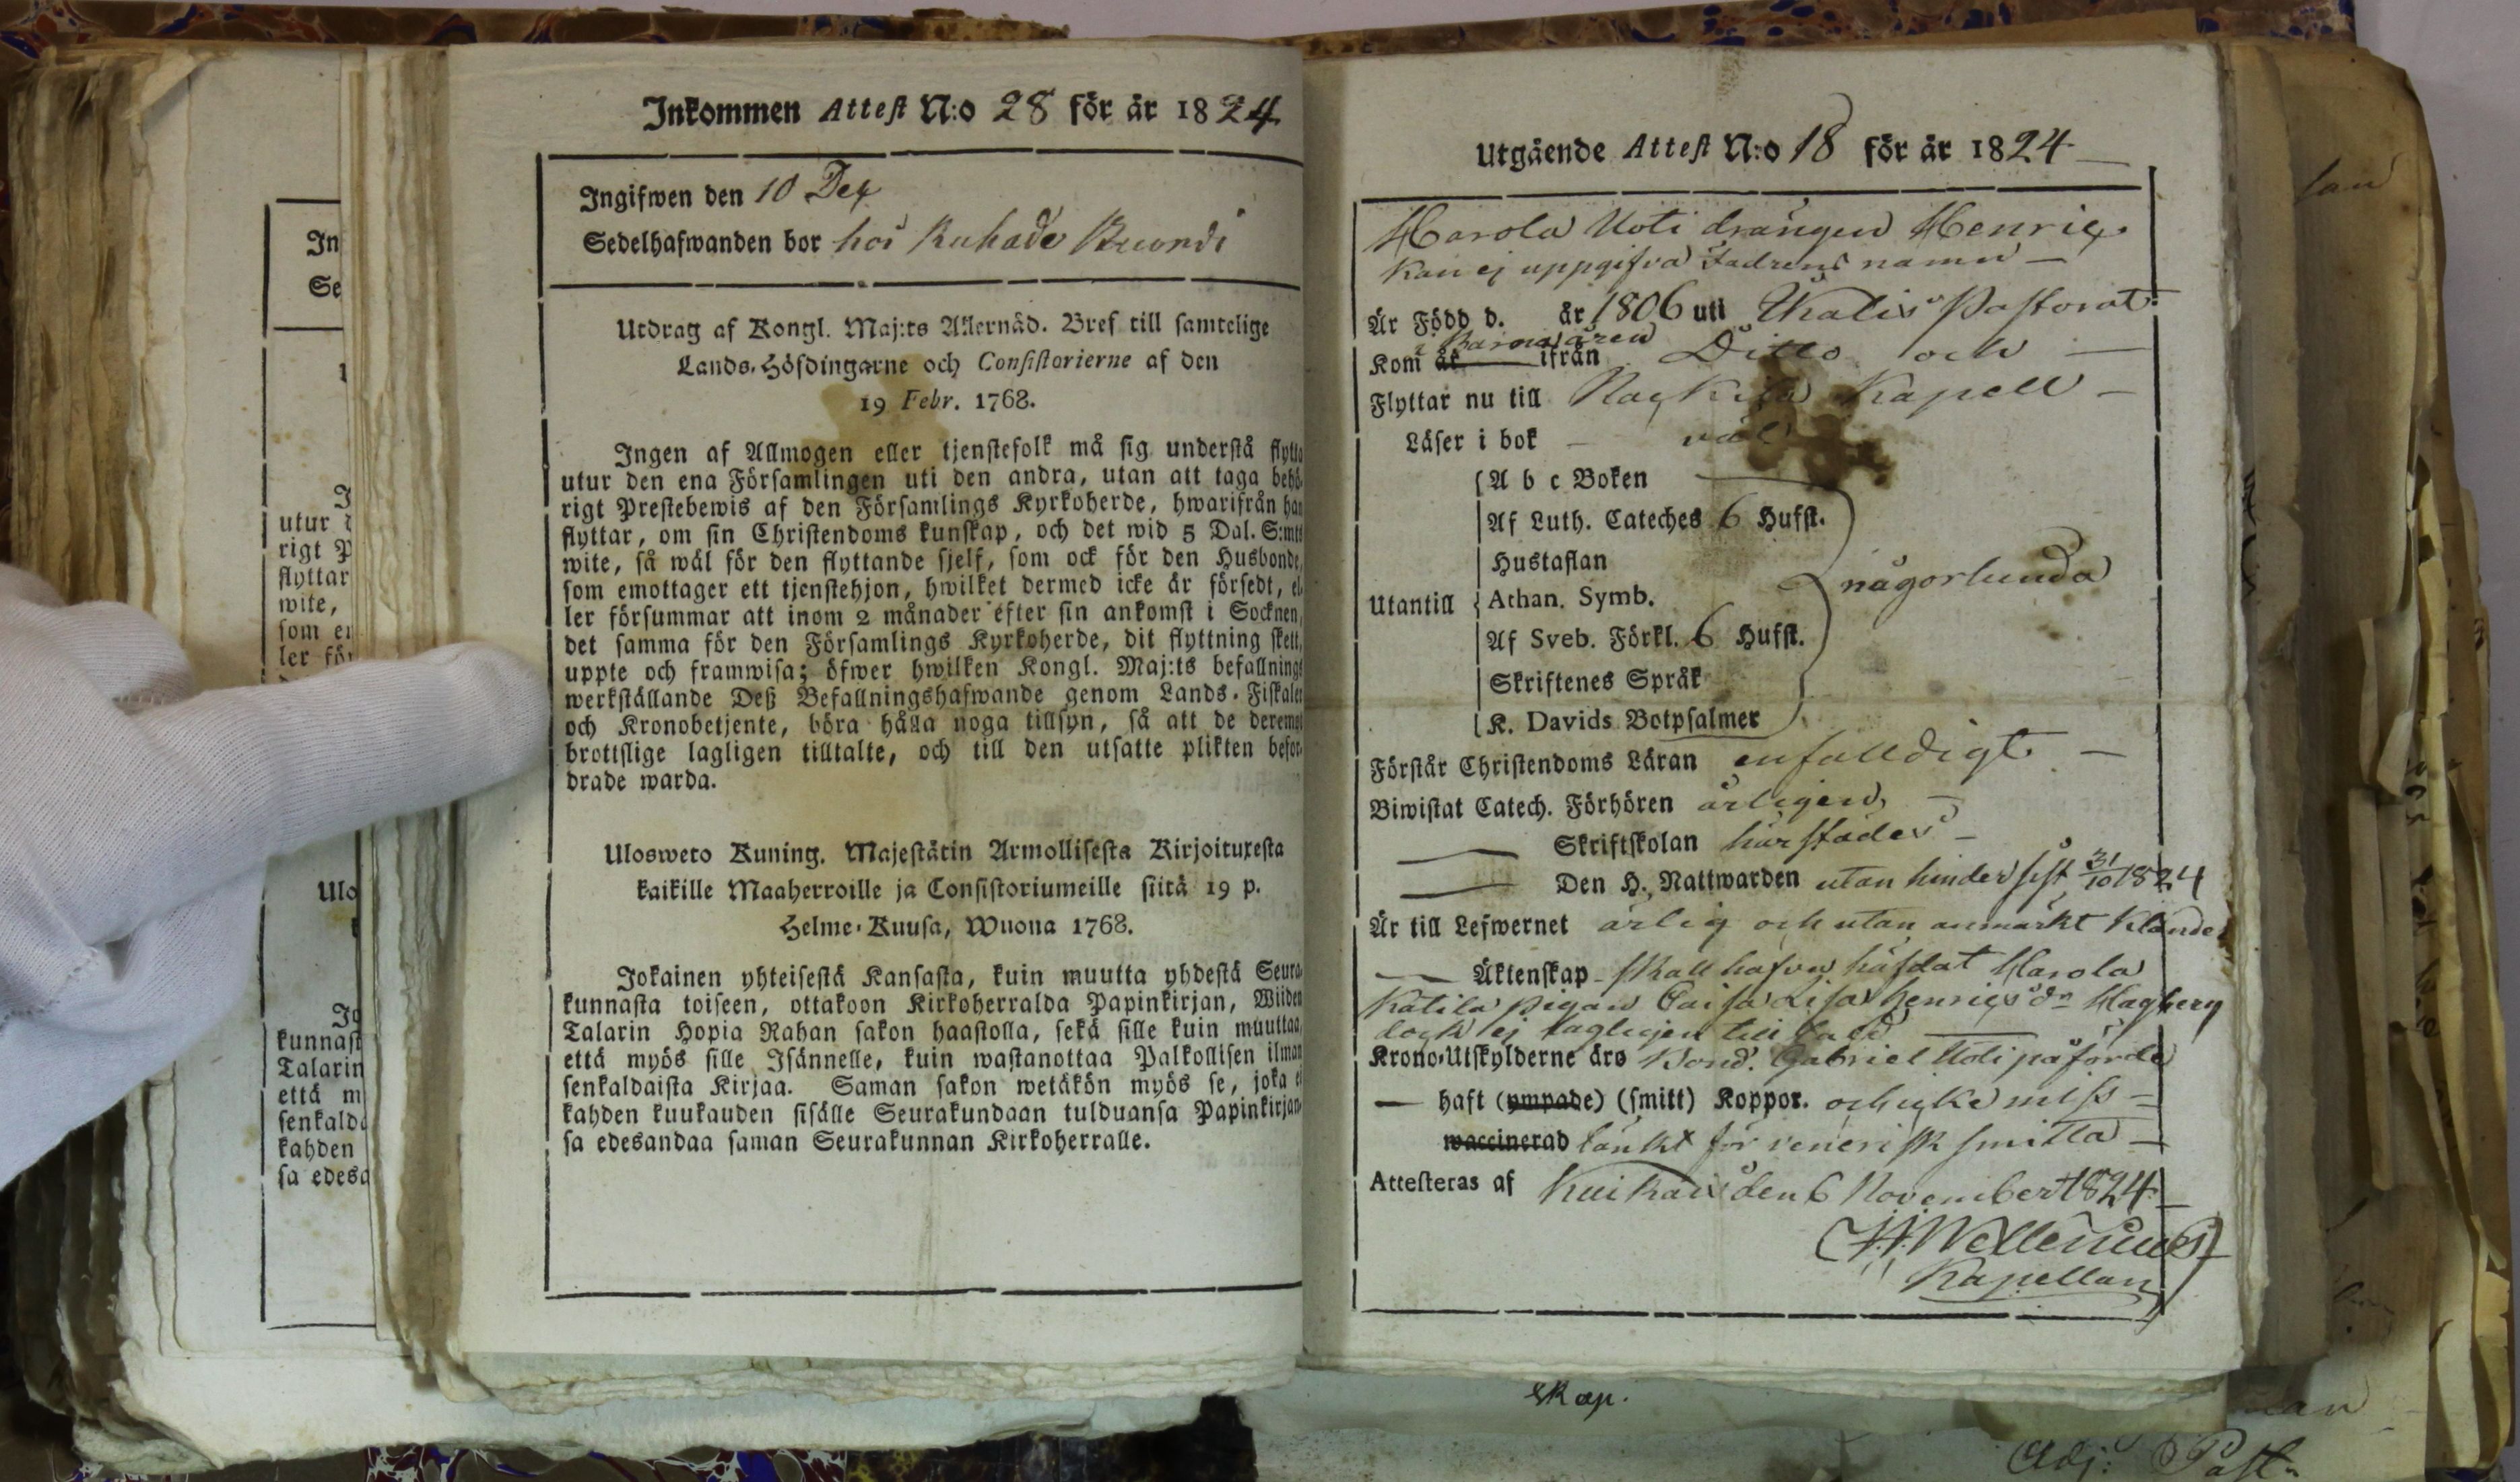 Inkommen Attest N:o 28 för år 1824
Ingifwen den 10 Dec
Sedelhafwanden bor hos
Utdrag af Kongl. Maj:ts Allernåd. Bref till samtelige
Lands-Höfdingarne och Consistorierne af den
19 Febr. 1768.
Ingen af Allmogen eller tjenstefolk må sig understå flytta
utur den ena Församlingen uti den andra, utan att taga behö-
rigt Prestebewis af den Församlings Kyrkoherde, hwarifrån han
flyttar, om sin Christendoms kunskap, och det wid 5 Dal. S:mts
wite, så wäl för den flyttande sjelf, som ock för den Husbonde,
som emottager ett tjenstehjon, hwilket dermed icke är försedt, el-
ler försummar att inom 2 månader efter sin ankomst i Socknen,
det samma för den Församlings Kyrkoherde, dit flyttning skett,
uppte och framwisa; öfwer hwilken Kongl. Maj:ts befallnings
werkställande Deß Befallningshafwande genom Lands-Fiskaler
och Kronobetjente, böra hålla noga tillsyn, så att de deremot
brottslige lagligen tilltalte, och till den utsatte plikten befor-
drade warda.
Ulosweto Kuning. Majestätin Armollisesta Kirjoituxesta
kaikille Maaherroille ja Consistoriumeille siitä 19 p.
Helme-Kuusa, Wuona 1768.
Jokainen yhteisestä Kansasta, kuin muutta yhdestä Seura-
kunnasta toiseen, ottakoon Kirkoherralda Papinkirjan, Wiiden
Talarin Hopia Rahan sakon haastolla, sekä sille kuin muuttaa,
että myös sille Isännelle, kuin wastanottaa Palkollisen ilman
senkaldaista Kirjaa. Saman sakon wetäkön myös se, joka ei
kahden kuukauden sisälle Seurakundaan tulduansa Papinkirjan-
sa edesandaa saman Seurakunnan Kirkoherralle.
Utgående Attest N:o 18 för år 1824
Harola Uoti drängen Henric
kan ej uppgifva Fadrens namn
Är Född d. år 1806 uti Ukalis Pastorat
i Barnaåren
Kom år ifrån Ditto och
Flyttar nu till Kapell
Läser i bok väl
A b c Boken
Af Luth. Cateches 6 Hufst.
Hustaflan
Utantill Athan. Symb. någorlunda
Af Sveb. Förkl. 6 Hufst.
Skriftenes Språk
K. Davids Botpsalmer
Förstår Christendoms Läran enfalldigt
Biwistat Catech. Förhören årligen
Skriftskolan härstädes
Den H. Nattwarden utan hinder sist 31/10 1824
Är till Lefwernet ärlig och utan anmärkt klander
Äktenskap skall hafva häfdat Harola
Katila pigan Caisa Lisa Henricsdr Hagberg
dock ej lagligen till
Krono-Utskylderne äro Bond. Gabriel Uoti påförde
haft (ympade) (smitt) Koppor. och icke miss-
waccinerad tänkt för venerisk smitta
Attesteras af den 6 November 1824
Kapellan
In
Se
utur
rigt P
flyttar
wite,
som e
ler för
Ulo
kunnast
Talarin
että m
senkalda
kahden
sa edesa
skap.
Adj: Past